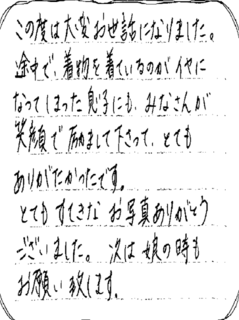 この度は大変お世話になりました。
途中で、着物を着ているのがイヤに
なってしまった息子にも、みなさんが
笑顔で励まして下さって、とても
ありがたかったです。
とてもすてきなお写真ありがとう
ございました。次は娘の時も
お願い致します。